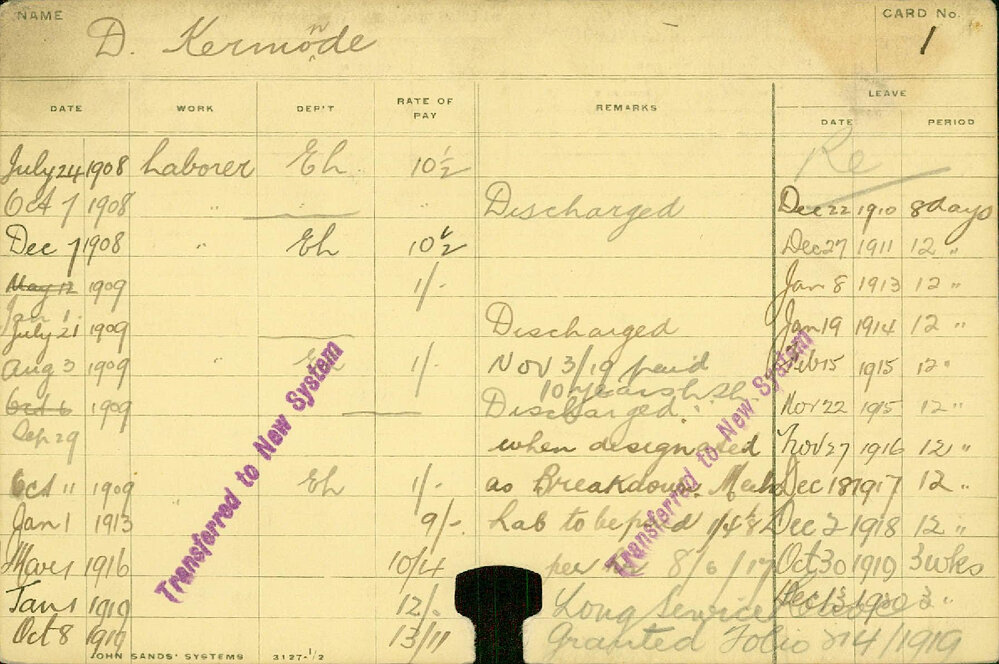 NAME
CARD No.
D. Kermode
n
1
DATE WORK DEP'T RATE OF PAY REMARKS LEAVE
DATE PERIOD
Re
July 24 1908 Laborer Eh 10½
Oct 7 1908 " " Discharged Dec 22 1910 8 days
Dec 7 1908 " Eh 10½ Dec 27 1911 12 "
May 12 1909 1/- Jan 8 1913 12 "
Jan 1
July 21 1909 Discharged Jan 19 1914 12 "
Aug 3 1909 " Eh 1/- Nov 3/19 paid Feb 15 1915 12 "
10 years
Oct 6 1909 Discharged Nov 22 1915 12 "
Sep 29 when designated Nov 27 1916 12 "
Oct 11 1909 " Eh 1/- as Breakdown Mech Dec 18 1917 12 "
Jan 1 1913 9/- Lab to be paid Dec 2 1918 12 "
Mar 1 1916 10/4 per 8/6/17 Oct 30 1919 3 wks
Jan 1 1919 12/- Long Service Dec 13 1920 3 "
Oct 8 1919 13/11 Granted Folio 214/1919
Transferred to New System
Transferred to New System
JOHN SANDS' SYSTEMS 3127-1/2